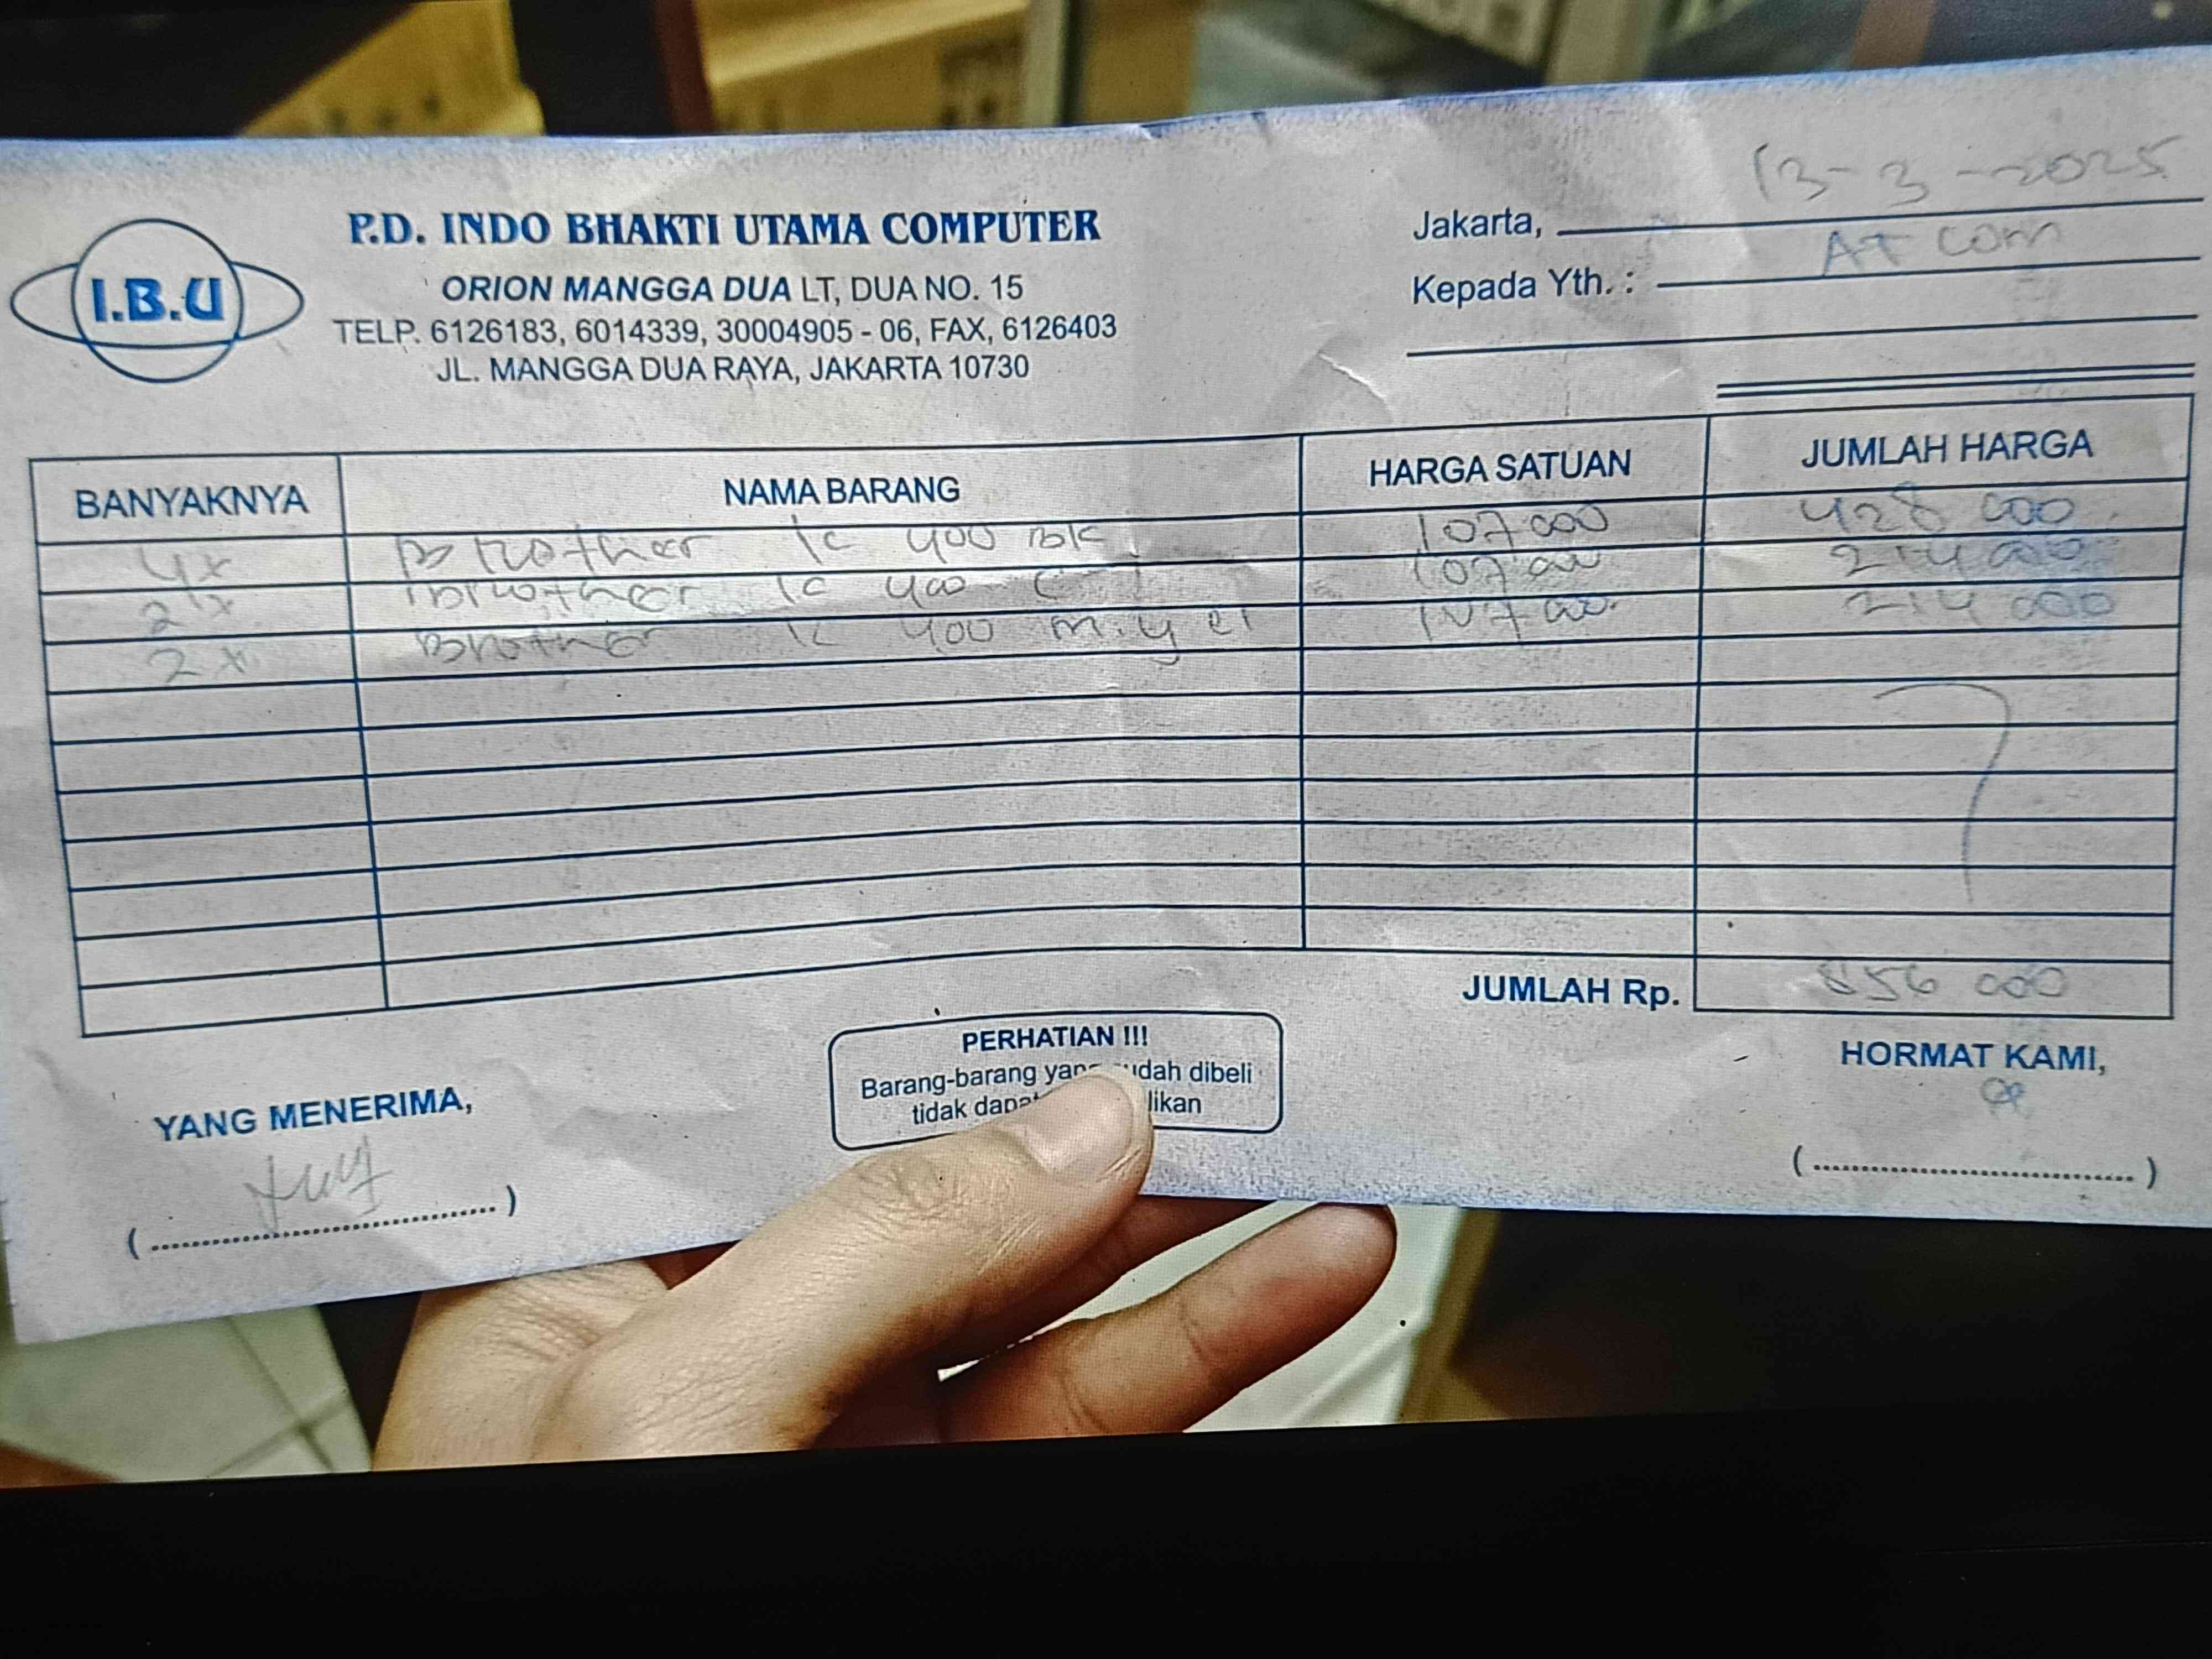 13-3-2025
P.D. INDO BHAKTI UTAMA COMPUTER
Jakarta,
AT com
I.B.U
ORION MANGGA DUA LT, DUA NO. 15
Kepada Yth. :
TELP. 6126183, 6014339, 30004905 - 06, FAX, 6126403
JL. MANGGA DUA RAYA, JAKARTA 10730
BANYAKNYA NAMA BARANG HARGA SATUAN JUMLAH HARGA
4x Brother lc 400 BK 107 000 428 000
2x Brother lc 400 C 107 000 214 000
2x Brother lc 400 m.y 107 000 214 000
JUMLAH Rp. 856 000
PERHATIAN !!!
Barang-barang yang sudah dibeli
tidak dapat likan
HORMAT KAMI,
YANG MENERIMA,